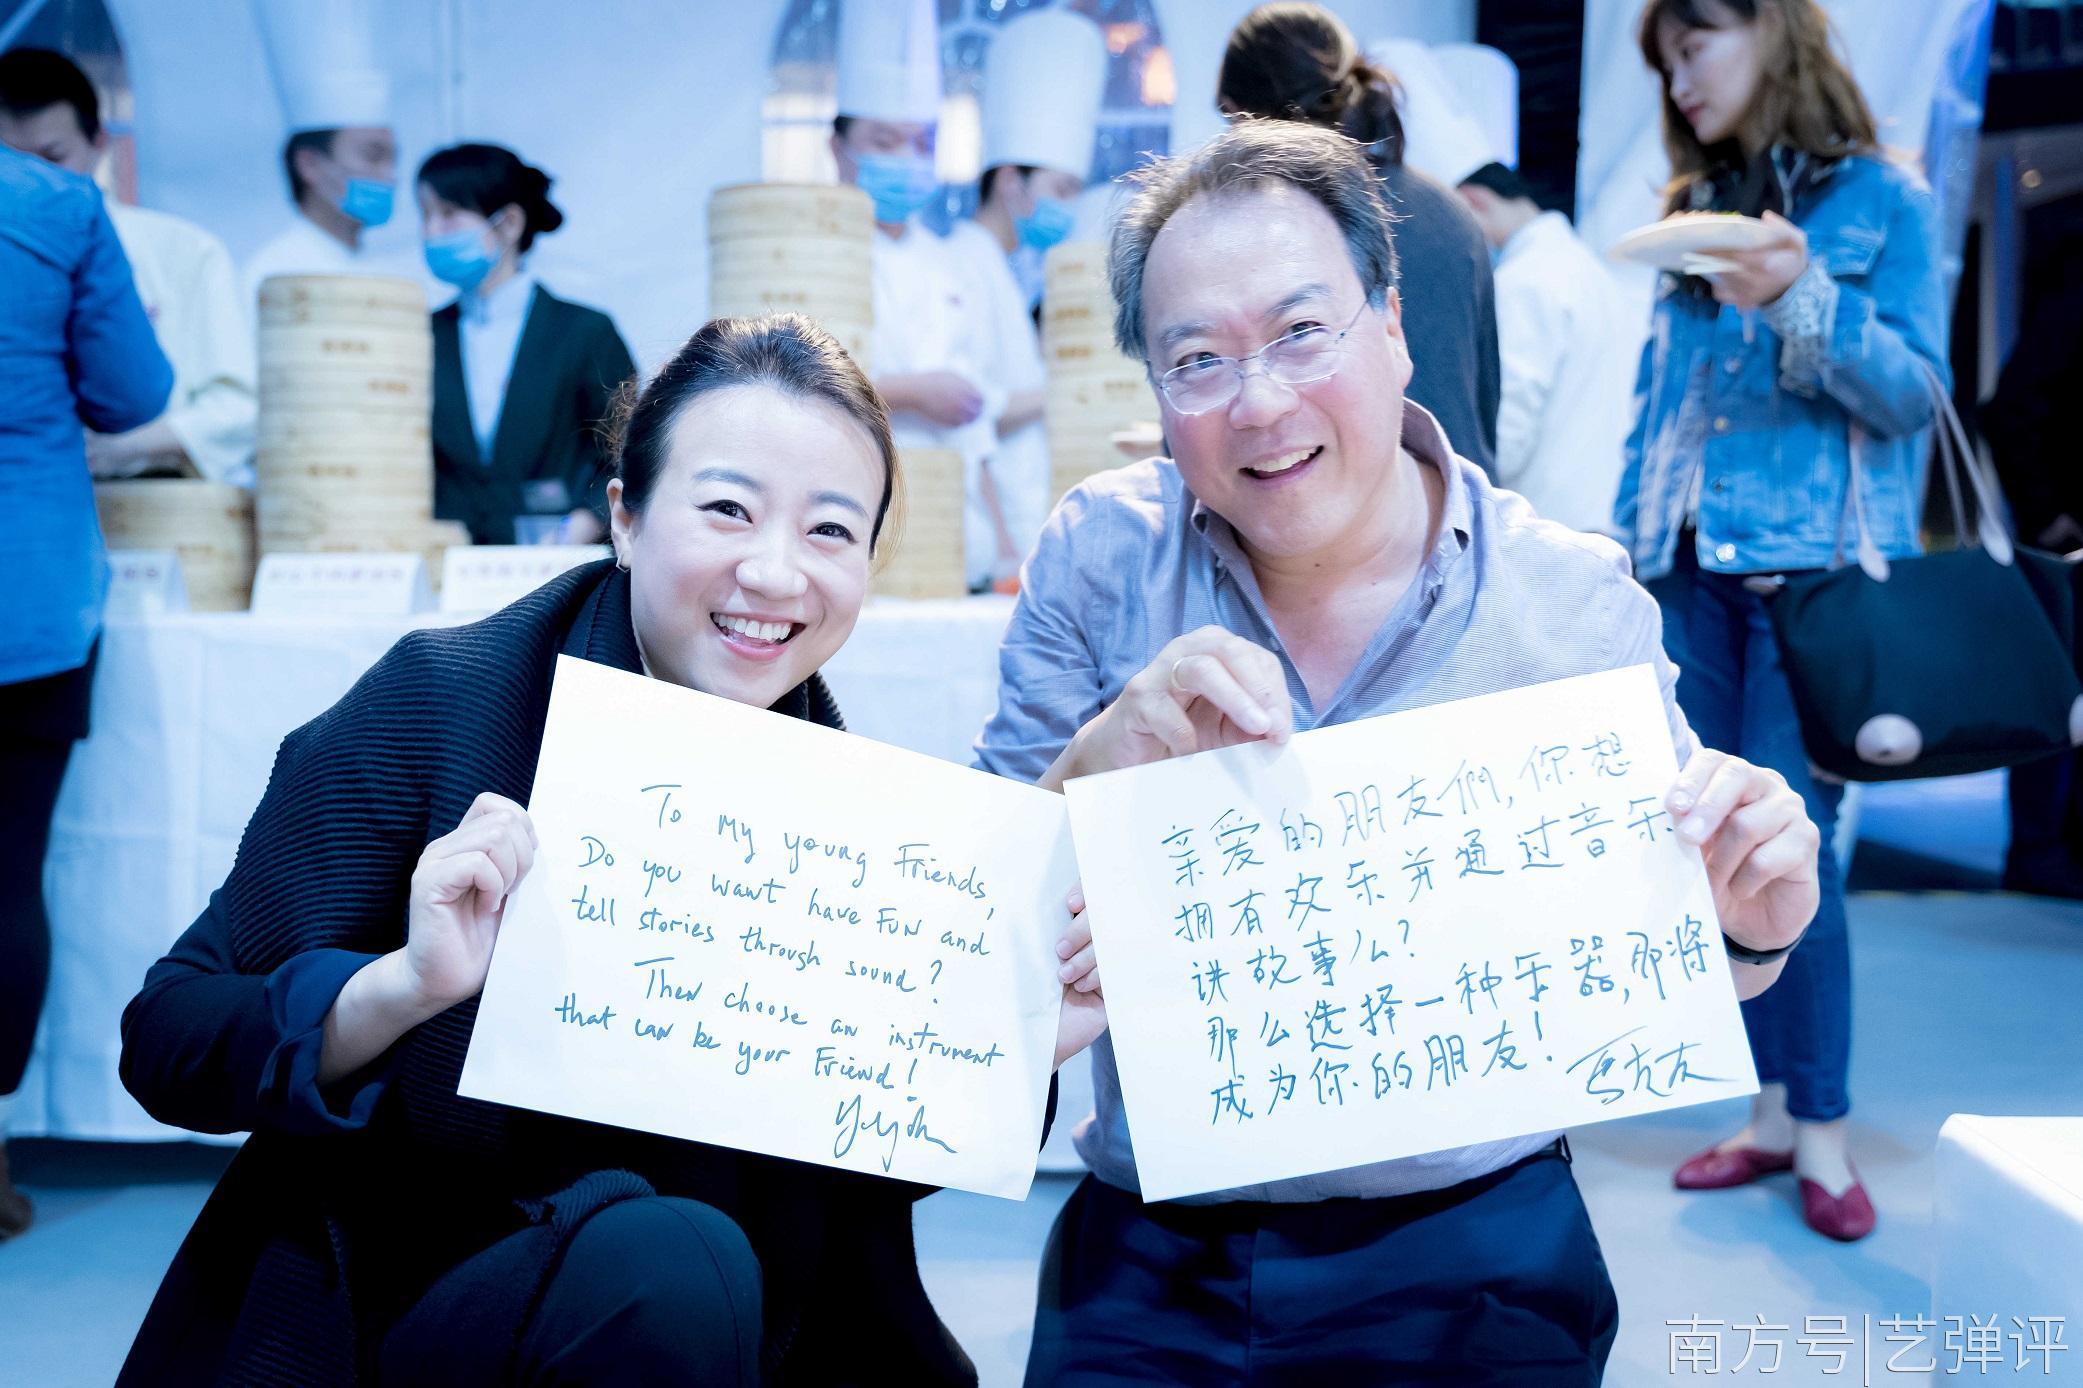 To my young Friends,
Do you want have FUN and
tell stories through sound?
Then choose an instrument
that can be your Friend!
亲爱的朋友们,你想
拥有欢乐并通过音乐
讲故事么?
那么选择一种乐器,即将
成为你的朋友!
马友友
南方号|艺弹评